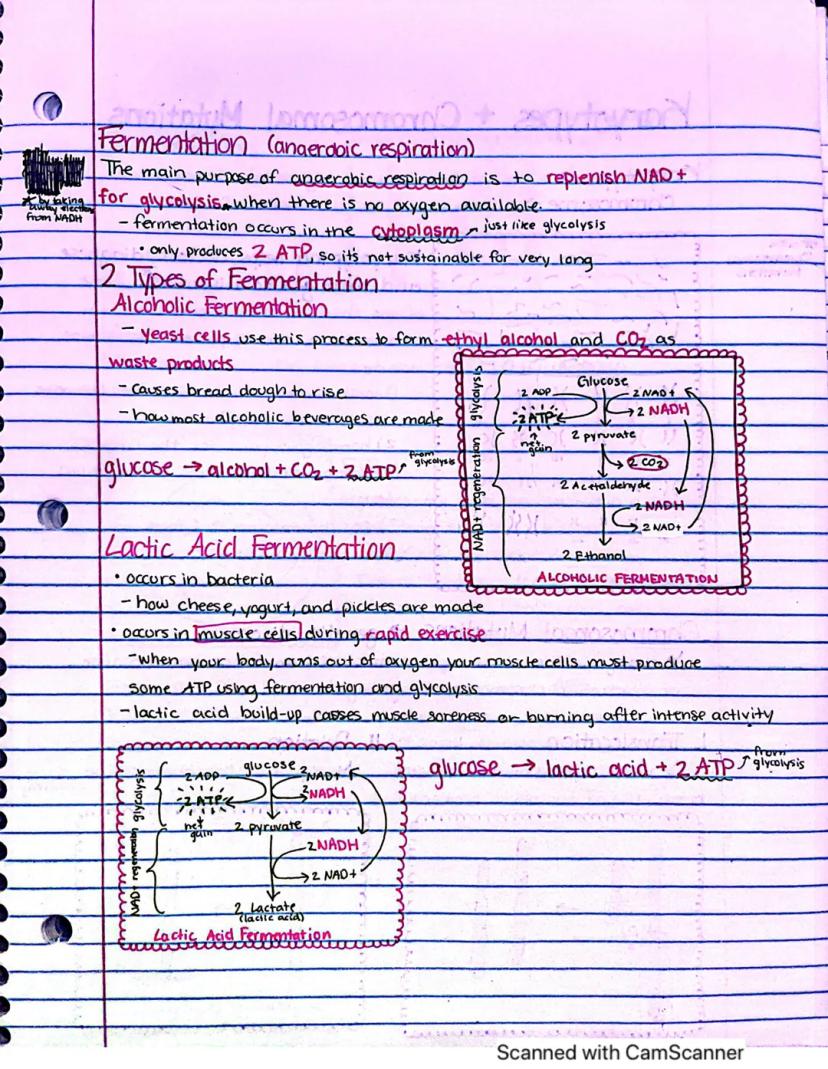 Fermentation (anaerobic respiration)
The main purpose of anaerobic respiration is to replenish NAD+
for glycolysis * when there is no oxygen available.
* by taking
away electrons
from NADH
- fermentation occurs in the cytoplasm just like glycolysis
• only produces 2 ATP, so it's not sustainable for very long
2 Types of Fermentation
Alcoholic Fermentation
- yeast cells use this process to form ethyl alcohol and CO2 as
waste products
- causes bread dough to rise
- how most alcoholic beverages are made
glucose → alcohol + CO2 + 2 ATP from glycolysis
glycolysis
NAD+ regeneration
Glucose
2 ADP
2 NAD+
2 ATP
2 NADH
net
gain
2 pyruvate
2 CO2
2 Acetaldehyde
2 NADH
2 NAD+
2 Ethanol
ALCOHOLIC FERMENTATION
Lactic Acid Fermentation
• occurs in bacteria
- how cheese, yogurt, and pickles are made
• occurs in muscle cells during rapid exercise
- when your body runs out of oxygen your muscle cells must produce
some ATP using fermentation and glycolysis
- lactic acid build-up causes muscle soreness or burning after intense activity
glucose → lactic acid + 2 ATP from glycolysis
glycolysis
NAD+ regeneration
glucose
2 ADP
2 NAD+
2 ATP
2 NADH
net
gain
2 pyruvate
2 NADH
2 NAD+
2 Lactate
(lactic acid)
Lactic Acid Fermentation
Scanned with CamScanner